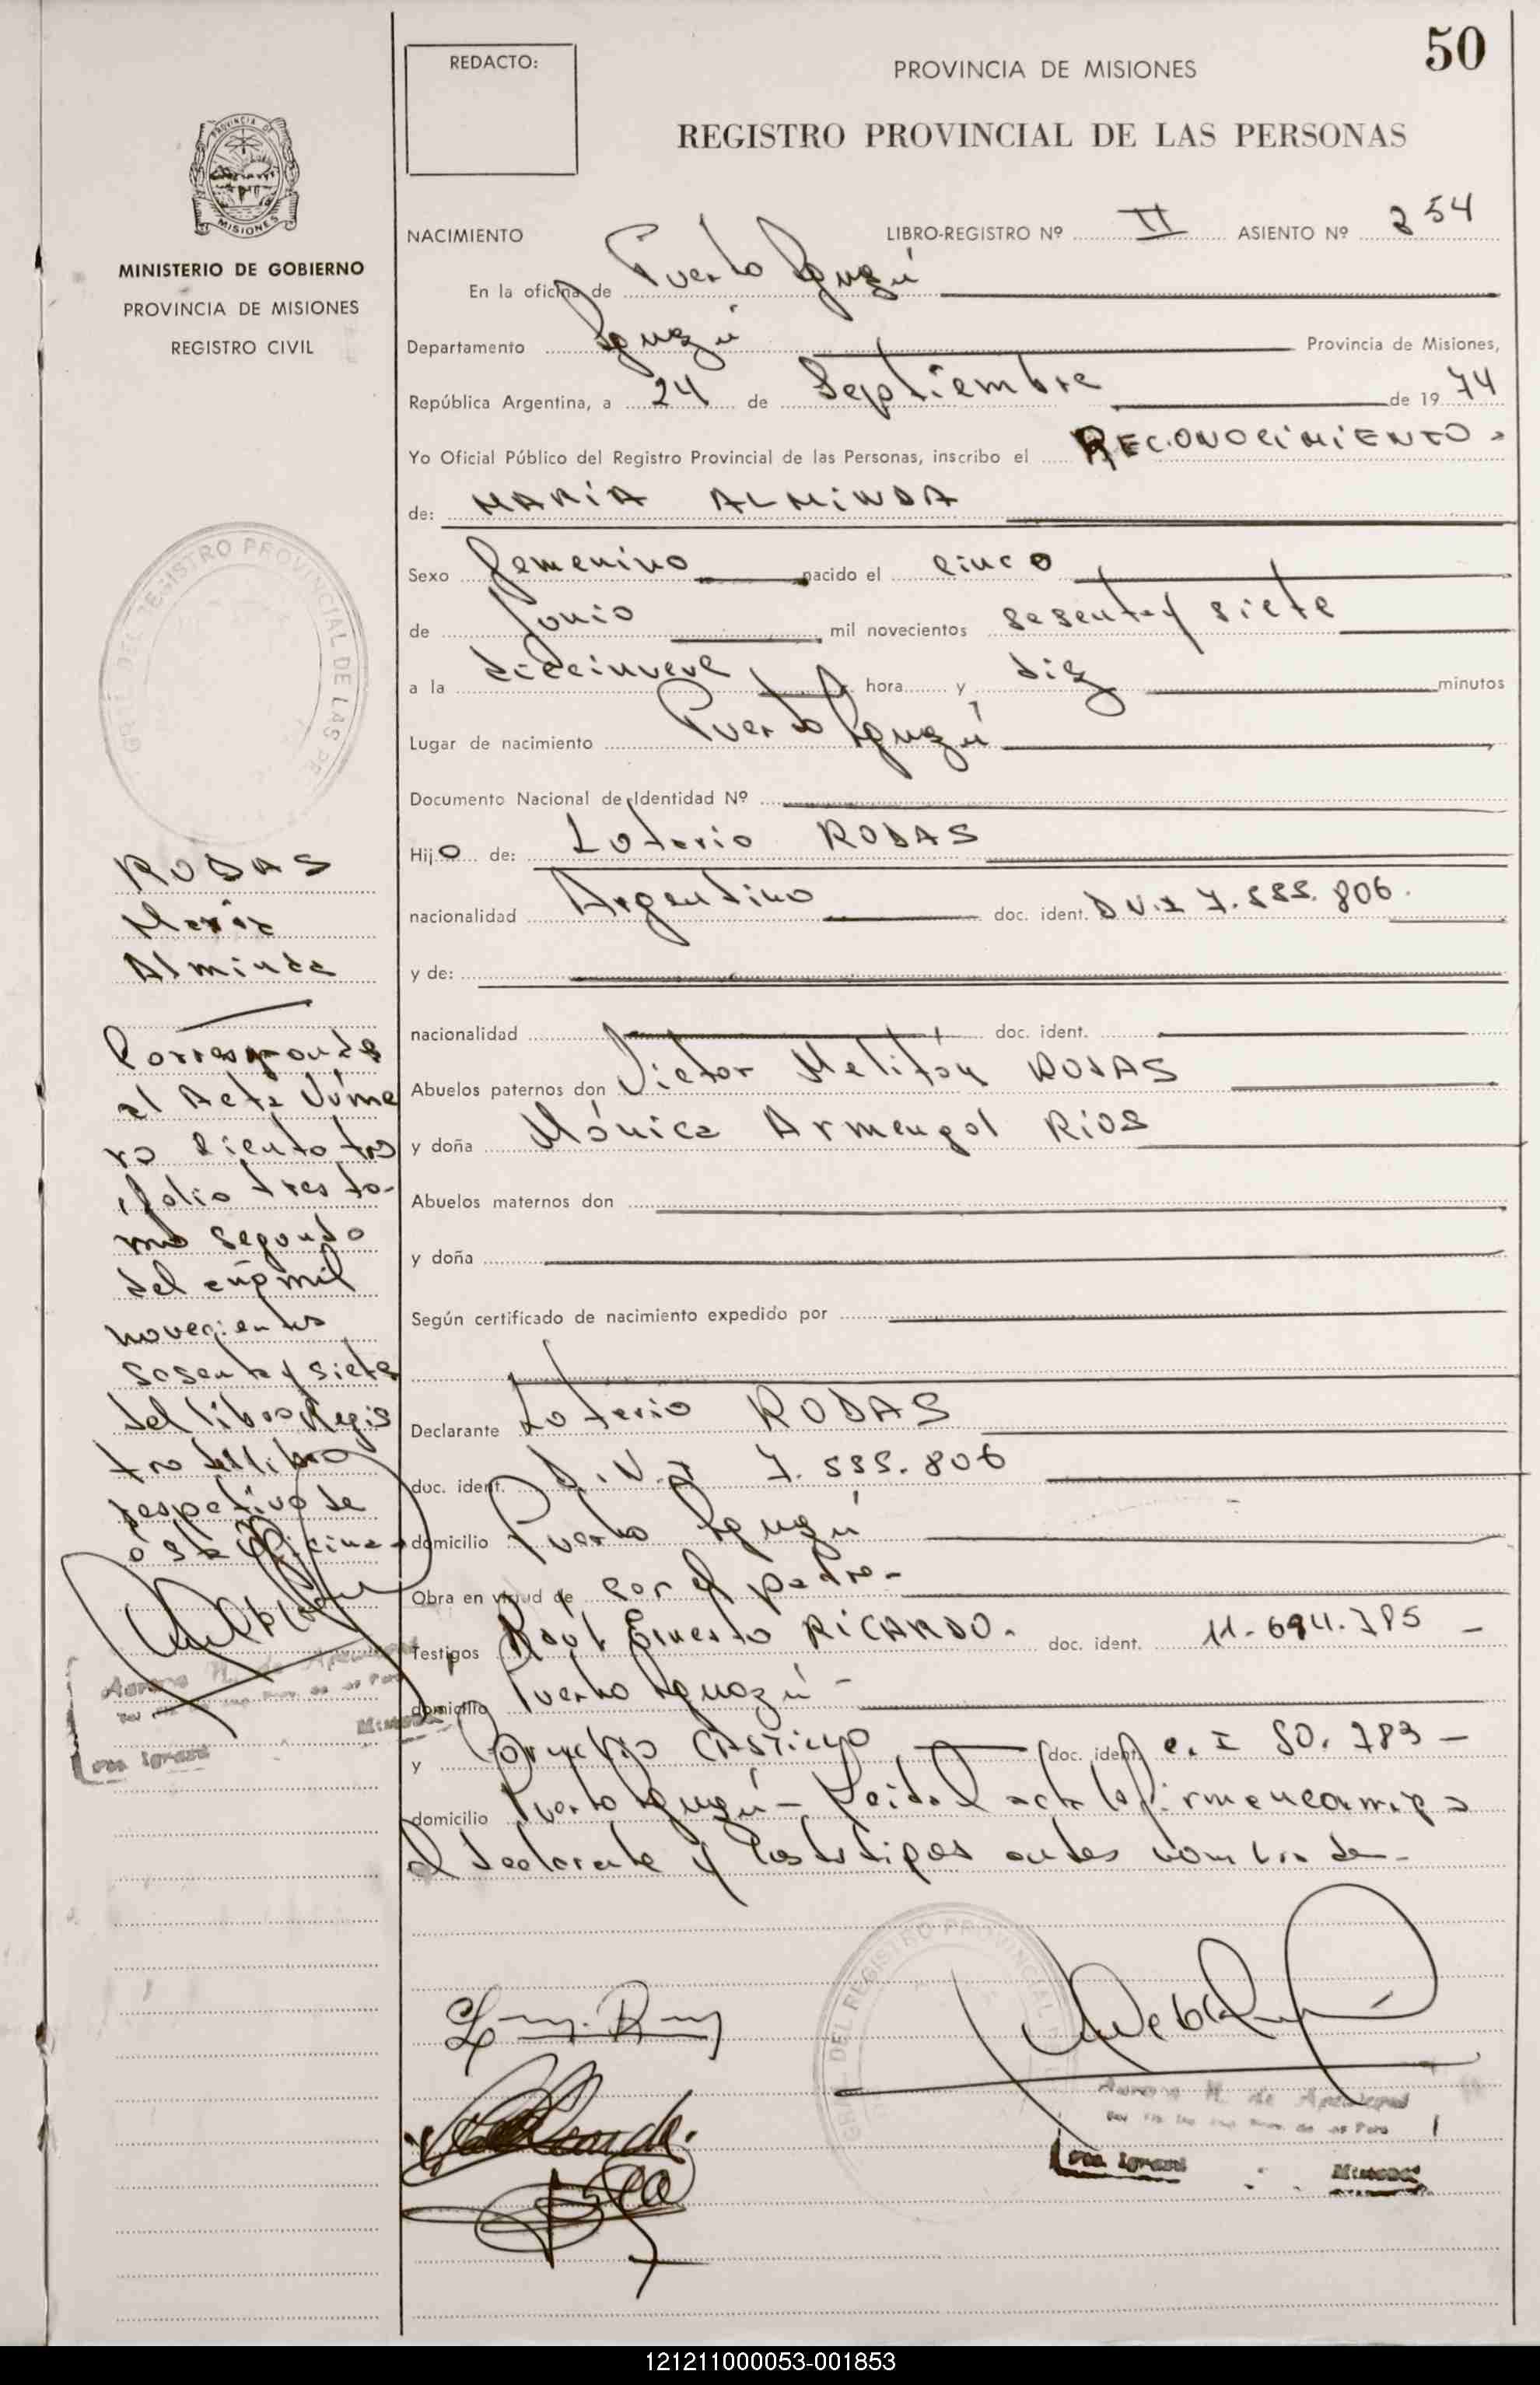 50
REDACTO:
PROVINCIA DE MISIONES
REGISTRO PROVINCIAL DE LAS PERSONAS
PROVINCIA DE
MISIONES
MINISTERIO DE GOBIERNO
PROVINCIA DE MISIONES
REGISTRO CIVIL
NACIMIENTO LIBRO-REGISTRO Nº II ASIENTO Nº 254
En la oficina de Puerto Iguazú
Departamento Iguazú Provincia de Misiones,
República Argentina, a 24 de Septiembre de 1974
Yo Oficial Público del Registro Provincial de las Personas, inscribo el RECONOCIMIENTO-
de: MARÍA ALMINDA
Sexo femenino nacido el cinco
de Junio mil novecientos sesenta y siete
a la diecinueve hora y diez minutos
Lugar de nacimiento Puerto Iguazú
Documento Nacional de Identidad Nº
Hijo de: Loterio RODAS
nacionalidad Argentino doc. ident. D N.I 7.555.806.
y de:
nacionalidad doc. ident.
Abuelos paternos don Victor Melitón RODAS
y doña Mónica Armengol RIOS
Abuelos maternos don
y doña
Según certificado de nacimiento expedido por
Declarante Loterio RODAS
doc. ident. D.N.I 7.555.806
domicilio Puerto Iguazú
Obra en virtud de ser el padre-
Testigos Raúl Ernesto RICARDO- doc. ident.
domicilio Puerto Iguazú-
y CASTILLO doc. ident. C. I 50.783-
domicilio Puerto Iguazú- Leida el acta la firman conmigo
el declarante y los testigos antes nombrados-
RODAS
María
Alminda
Corresponde
al Acta Núme
ro ciento tres
folio tres to-
mo segundo
del año mil
novecientos
sesenta y siete
del libro Regis
tro del libro
respectivo de
ésta Oficina-
REGISTRO PROVINCIAL DE LAS PE
DEL REGISTRO PROVINCIAL
Aurora M. de
Aurora M. de
121211000053-001853